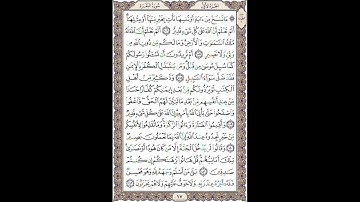 الجزء الأول سورة البقرة
۞ مَا نَنسَخْ مِنْ ءَايَةٍ أَوْ نُنسِهَا نَأْتِ بِخَيْرٍ مِّنْهَآ أَوْ مِثْلِهَآ
أَلَمْ تَعْلَمْ أَنَّ ٱللَّهَ عَلَىٰ كُلِّ شَىْءٍ قَدِيرٌ ١٠٦ أَلَمْ تَعْلَمْ أَنَّ ٱللَّهَ لَهُۥ
مُلْكُ ٱلسَّمَـٰوَٰتِ وَٱلْأَرْضِ وَمَا لَكُم مِّن دُونِ ٱللَّهِ مِن
وَلِىٍّ وَلَا نَصِيرٍ ١٠٧ أَمْ تُرِيدُونَ أَن تَسْـَٔلُوا۟ رَسُولَكُمْ
كَمَا سُئِلَ مُوسَىٰ مِن قَبْلُ وَمَن يَتَبَدَّلِ ٱلْكُفْرَ بِٱلْإِيمَـٰنِ
فَقَدْ ضَلَّ سَوَآءَ ٱلسَّبِيلِ ١٠٨ وَدَّ كَثِيرٌ مِّنْ أَهْلِ
ٱلْكِتَـٰبِ لَوْ يَرُدُّونَكُم مِّنۢ بَعْدِ إِيمَـٰنِكُمْ كُفَّارًا حَسَدًا
مِّنْ عِندِ أَنفُسِهِم مِّنۢ بَعْدِ مَا تَبَيَّنَ لَهُمُ ٱلْحَقُّ فَٱعْفُوا۟
وَٱصْفَحُوا۟ حَتَّىٰ يَأْتِىَ ٱللَّهُ بِأَمْرِهِۦٓ إِنَّ ٱللَّهَ عَلَىٰ كُلِّ شَىْءٍ قَدِيرٌ ١٠٩
وَأَقِيمُوا۟ ٱلصَّلَوٰةَ وَءَاتُوا۟ ٱلزَّكَوٰةَ وَمَا تُقَدِّمُوا۟ لِأَنفُسِكُم
مِّنْ خَيْرٍ تَجِدُوهُ عِندَ ٱللَّهِ إِنَّ ٱللَّهَ بِمَا تَعْمَلُونَ بَصِيرٌ ١١٠
وَقَالُوا۟ لَن يَدْخُلَ ٱلْجَنَّةَ إِلَّا مَن كَانَ هُودًا أَوْ نَصَـٰرَىٰ
تِلْكَ أَمَانِيُّهُمْ قُلْ هَاتُوا۟ بُرْهَـٰنَكُمْ إِن كُنتُمْ
صَـٰدِقِينَ ١١١ بَلَىٰ مَنْ أَسْلَمَ وَجْهَهُۥ لِلَّهِ وَهُوَ مُحْسِنٌ
فَلَهُۥٓ أَجْرُهُۥ عِندَ رَبِّهِۦ وَلَا خَوْفٌ عَلَيْهِمْ وَلَا هُمْ يَحْزَنُونَ ١١٢
١٧